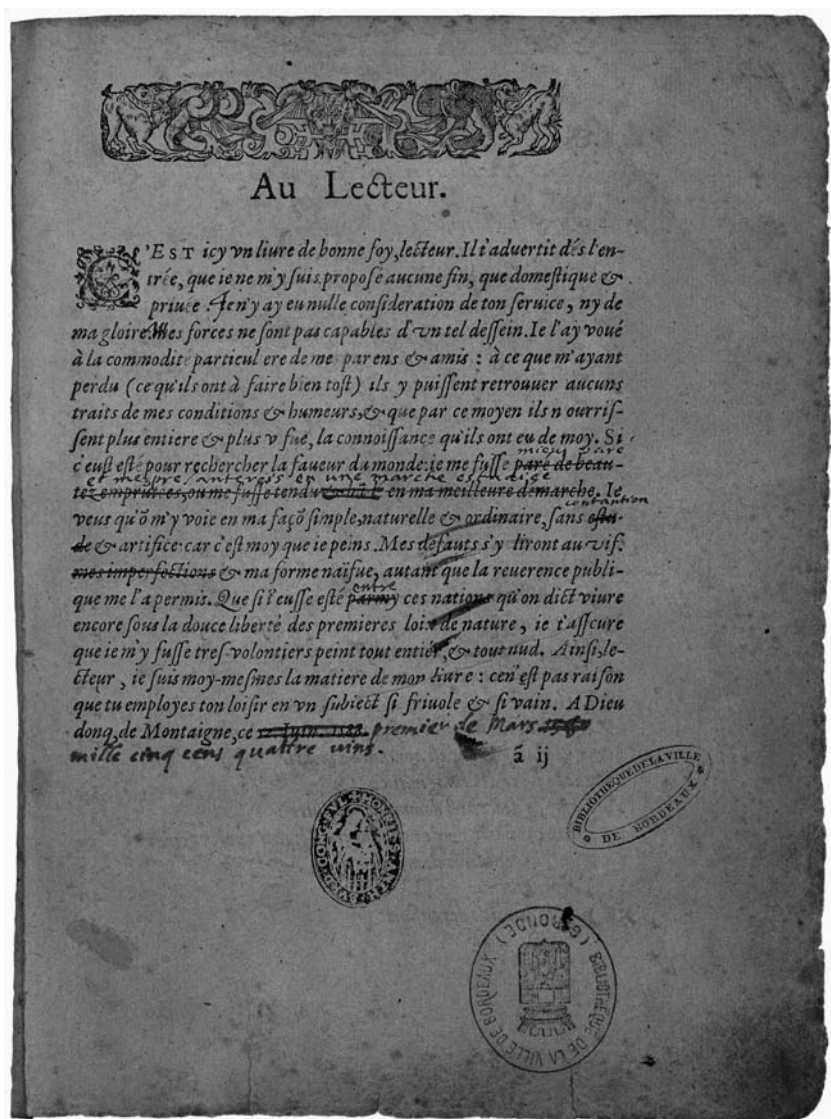 Au Lecteur.
C'EST icy vn liure de bonne foy, lecteur. Il t'aduertit dés l'en-
trée, que ie ne m'y suis proposé aucune fin, que domestique &
priuée. Je n'y ay eu nulle consideration de ton seruice, ny de
ma gloire. Mes forces ne sont pas capables d'vn tel dessein. Ie l'ay voué
à la commodité particul ere de me parens & amis : à ce que m'ayant
perdu (ce qu'ils ont à faire bien tost) ils y puissent retrouuer aucuns
traits de mes conditions & humeurs, & que par ce moyen ils n ourris-
sent plus entiere & plus v fue, la connoissance qu'ils ont eu de moy. Si
mieus paré
c'eust esté pour rechercher la faueur du monde: ie me fusse paré de beau-
et me en une marche estudiee
tez empruntées, ou me fusse tendu en ma meilleure démarche. Ie
contantion
veus qu'õ m'y voie en ma façõ simple, naturelle & ordinaire, sans estu-
de & artifice: car c'est moy que ie peins. Mes defauts s'y liront au vif.
mes imperfections & ma forme naïfue, autant que la reuerence publi-
entre
que me l'a permis. Que si i'eusse esté parmy ces nations qu'on dict viure
encore sous la douce liberté des premieres loix de nature, ie t'asscure
que ie m'y fusse tres-volontiers peint tout entier, & tout nud. Ainsi, le-
cteur, ie suis moy-mesmes la matiere de mon liure : ce n'est pas raison
que tu employes ton loisir en vn subiect si friuole & si vain. A Dieu
donq, de Montaigne, ce 12 Iuin. 1588. premier de Mars
mille cinq cens quattre vins.
ã ij
BIBLIOTHEQUE DE LA VILLE
DE BORDEAUX
BIBLIOTHÈQUE DE LA VILLE DE BORDEAUX (GIRONDE)